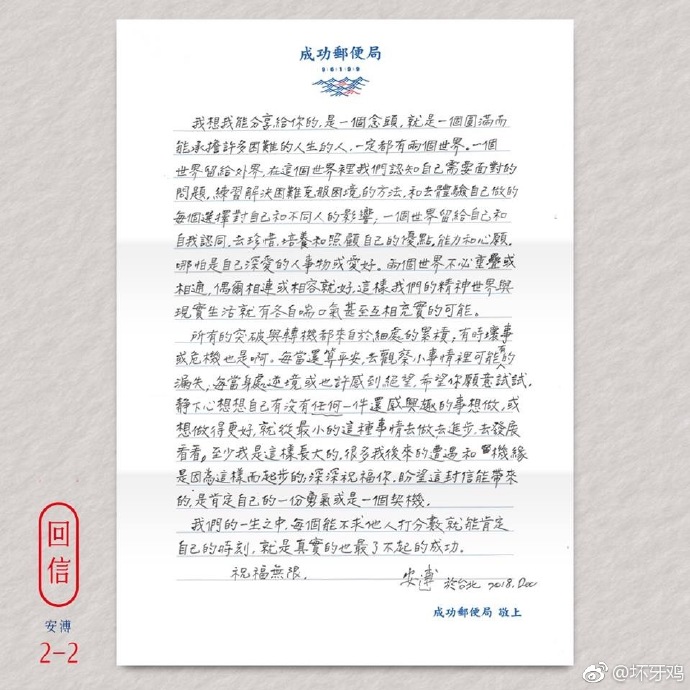 成功郵便局
96199
我想我能分享給你的，是一個念頭，就是一個圓滿而
能承擔許多困難的人生的人，一定都有兩個世界。一個
世界留給外界，在這個世界裡我們認知自己需要面對的
問題，練習解決困難克服困境的方法，和去體驗自己做的
每個選擇對自己和不同人的影響，一個世界留給自己和
自我認同，去珍惜、培養和照顧自己的優點、能力和心願。
哪怕是自己深愛的人事物或愛好。兩個世界不必重疊或
相通，偶爾相連或相容就好，這樣我們的精神世界與
現實生活就有各自喘口氣甚至互相充實的可能。
所有的突破與轉機都來自於細處的累積，有時壞事
或危機也是啊。每當還算平安，去觀察小事情裡可能有的
漏失，每當身處逆境或也許感到絕望，希望你願意試試，
靜下心想想自己有沒有任何一件還感興趣的事想做，或
想做得更好，就從最小的這種事情去做去進步、去發展
看看，至少我是這樣長大的，很多我後來的遭遇和機緣
是因為這樣而起步的，深深祝福你，盼望這封信能帶來
的，是肯定自己的一份勇氣或是一個契機。
我們的一生之中，每個能不求他人打分數就能肯定
自己的時刻，就是真實的也最了不起的成功。
祝福無限，
安溥 於台北 2018. Dec
成功郵便局 敬上
回信
安溥
2-2
@坏牙鸡